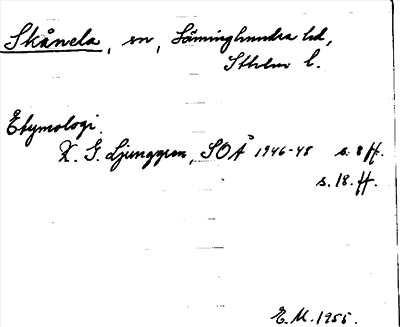 Skånela, sn, Seminghundra hd,
Sthlms l.
Etymologi.
K. G. Ljunggren, SOÅ 1946-48 s. 8 ff.
s. 18. ff.
E. M. 1955.